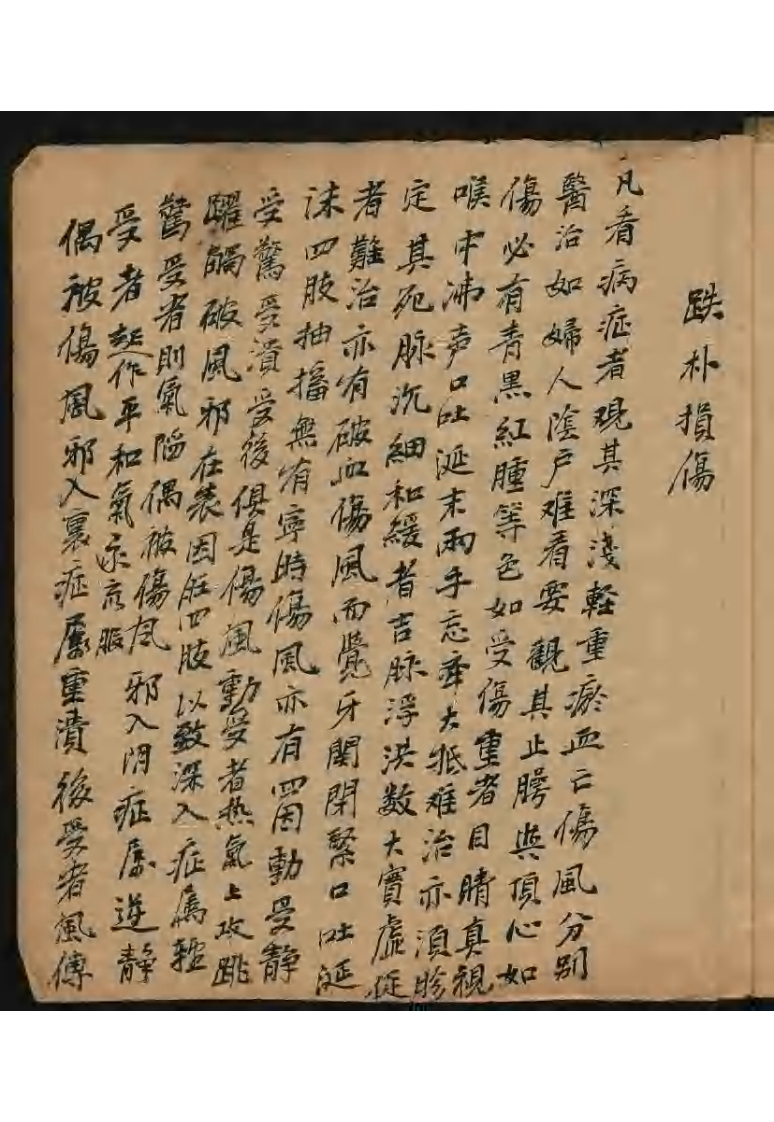 跌朴損傷
凡看病症者观其深淺軽重瘀血亡傷風分别
醫治如婦人陰户难看要觀其止腭與頂心如
傷必有青黑紅腫等色如受傷重者目睛真視
喉中沸声口吐涎末兩手忘牵大抵难治亦須胗
定其死脉沉細和緩者吉脉浮洪数大實虛促
者難治亦有破血傷風而覺牙関閉緊口吐涎
沫四肢抽搐無有寧時傷風亦有四因動受静
受驚受潰受後俱是傷風動受者热氣上攻跳
躍觸破風邪在表因旺四肢以致深入症属軽
驚受者則氣陷偶被傷風邪入阴症属逆静
受者起作平和氣永
偶被傷風邪入裏症屬重潰後受者風傳